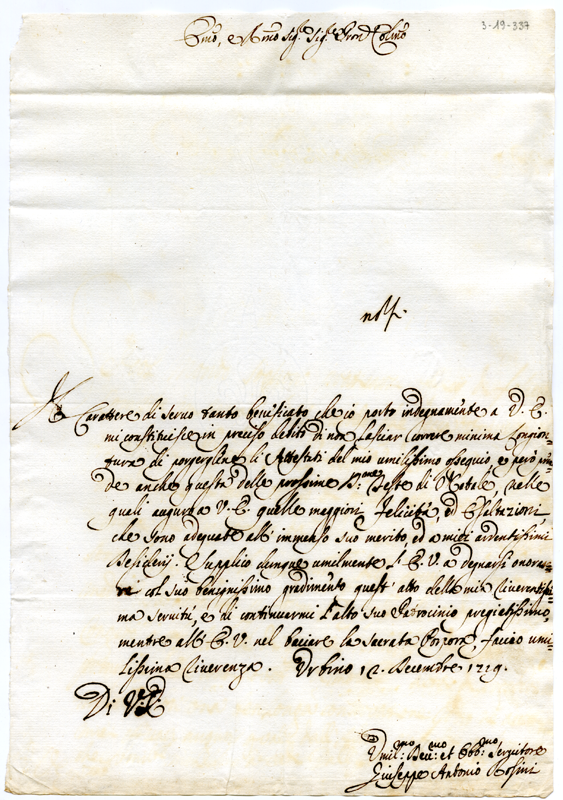 3-19-337
Emo, e Rmo Sig.r Sig.r Pron Colmo
Il Carattere di servo tanto beneficato che io porto indegnamente a V. E.
mi constituisce in preciso debito di non lasciar correre minima Congion-
tura di porgergliene di Attestati del mio umilissimo ossequio, e però pren-
de anche questa delle prossime Feste di Natale, nelle
quali auguro a V. E. quelle maggiori felicità, ed Esaltazioni
che sono adeguate all' immenso suo merito, ed a miei ardentissimi
desiderij. Supplico dunque umilmente l' E. V. a degnarsi onora-
re col suo benignissimo gradimento quest' atto della mia riverentissi-
ma servitù, e di continuarmi l' alto suo Patrocinio pregiatissimo,
mentre all' E. V. nel baciare la sacrata Porpora, faccio umi-
lissima riverenza. Urbino 12. Decembre 1719.
Di V. E.
Umil.mo Dev.mo et Obb.mo Servitore
Giuseppe Antonio Rosini